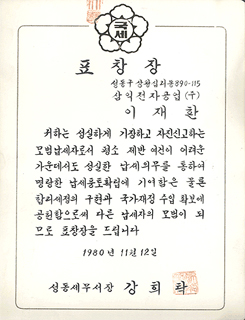 국세
표창장
성동구 상왕십리동 890-115
삼익전자공업 (주)
이재환
귀하는 성실하게 기장하고 자진신고하는
모범납세자로서 평소 제반 여건이 어려운
가운데서도 성실한 납세의무를 통하여
명랑한 납세풍토확립에 기여함은 물론
합리세정의 구현과 국가재정 수입 확보에
공헌함으로써 다른 납세자의 모범이 되
므로 표창장을 드립니다
1980년 11월 12일
성동세무서장 강희탁